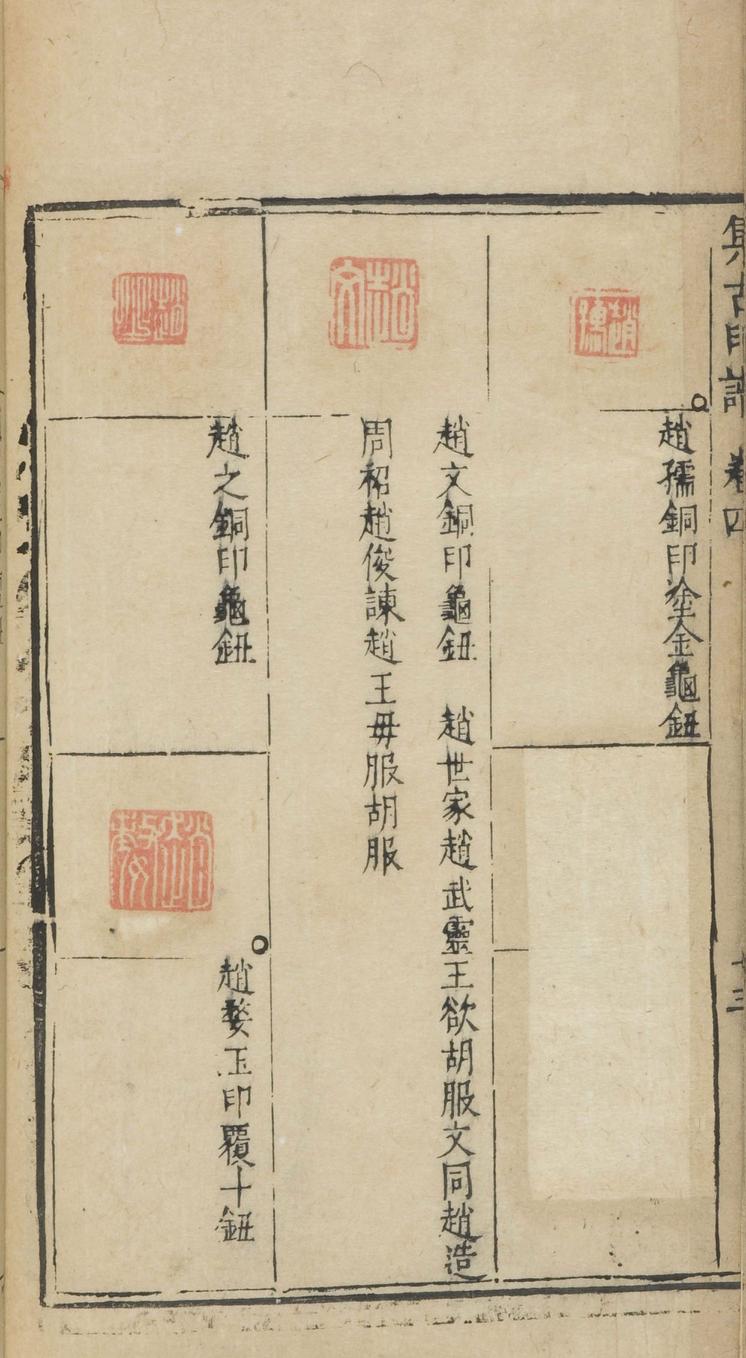 集古印譜 卷四
十三
趙孺
趙孺銅印塗金龜鈕
趙文
趙文銅印龜鈕　趙世家趙武靈王欲胡服文同趙造
周袑趙俊諫趙王毋服胡服
趙之銅印龜鈕
趙婺玉印覆十鈕